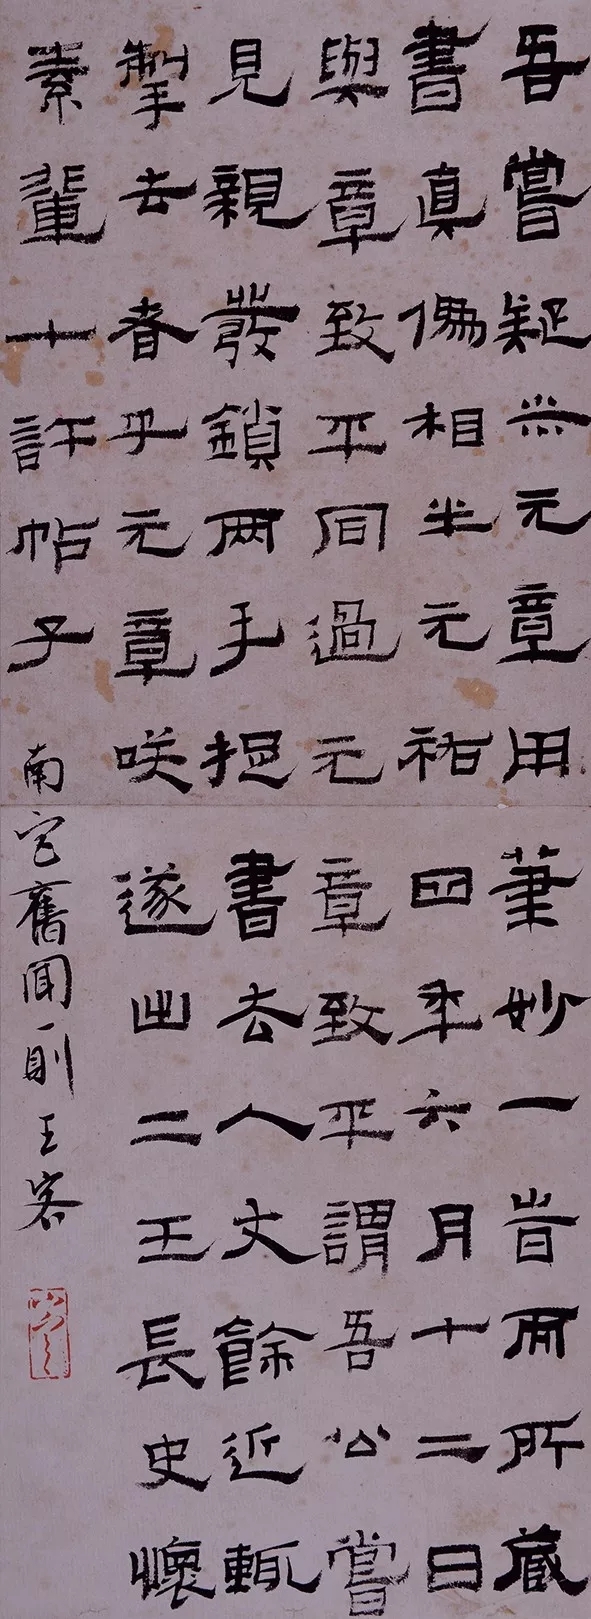 吾嘗疑米元章用筆妙一旹而所藏
書真偽相半元祐四年六月十二日
與章致平同過元章致平謂吾公嘗
見親發鎖两手捉書去人丈餘近輒
掣去者乎元章咲遂出二王長史懷
素輩十許帖子
南宮舊聞一則 王